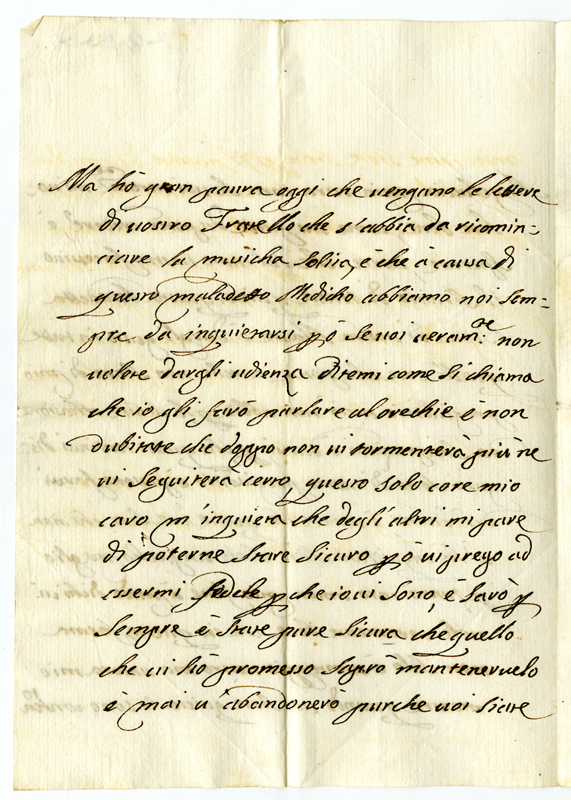 Ma hò gran paura oggi che vengano le lettere
di vostro Fratello che s'abbia da ricomin=
ciare la musicha solita, è che à causa di
questo maladetto Medicho abbiamo noi sem=
pre da inquietarsi però se voi veram:te non
volete dargli udienza ditemi come si chiama
che io gli farò parlare al orechie è non
dubitate che doppo non vi tormenterà più ne
vi seguiterà certo, questo solo core mio
caro m'inquieta che degl'altri mi pare
di poterne stare sicuro però vi prego ad
essermi fedele perche io vi sono, è sarò per
sempre è state pure sicura che quello
che vi hò promesso saprò mantenervelo
è mai v'abandonerò purche voi siate